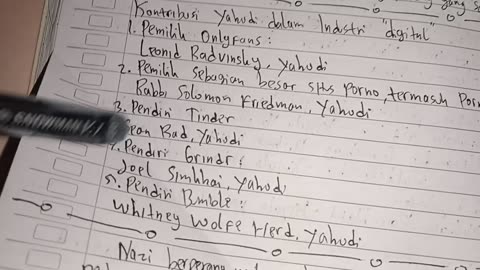 Kontribusi Yahudi dalam Industri "digital"
1. Pemilik OnlyFans :
Leonid Radvinsky, Yahudi
2. Pemilik sebagian besar situs porno, termasuk Por
Rabbi Solomon Friedman, Yahudi
3. Pendiri Tinder
Sean Rad, Yahudi
4. Pendiri Grindr :
Joel Simkhai, Yahudi
5. Pendiri Bumble :
Whitney Wolfe Herd, Yahudi
Nazi berperang